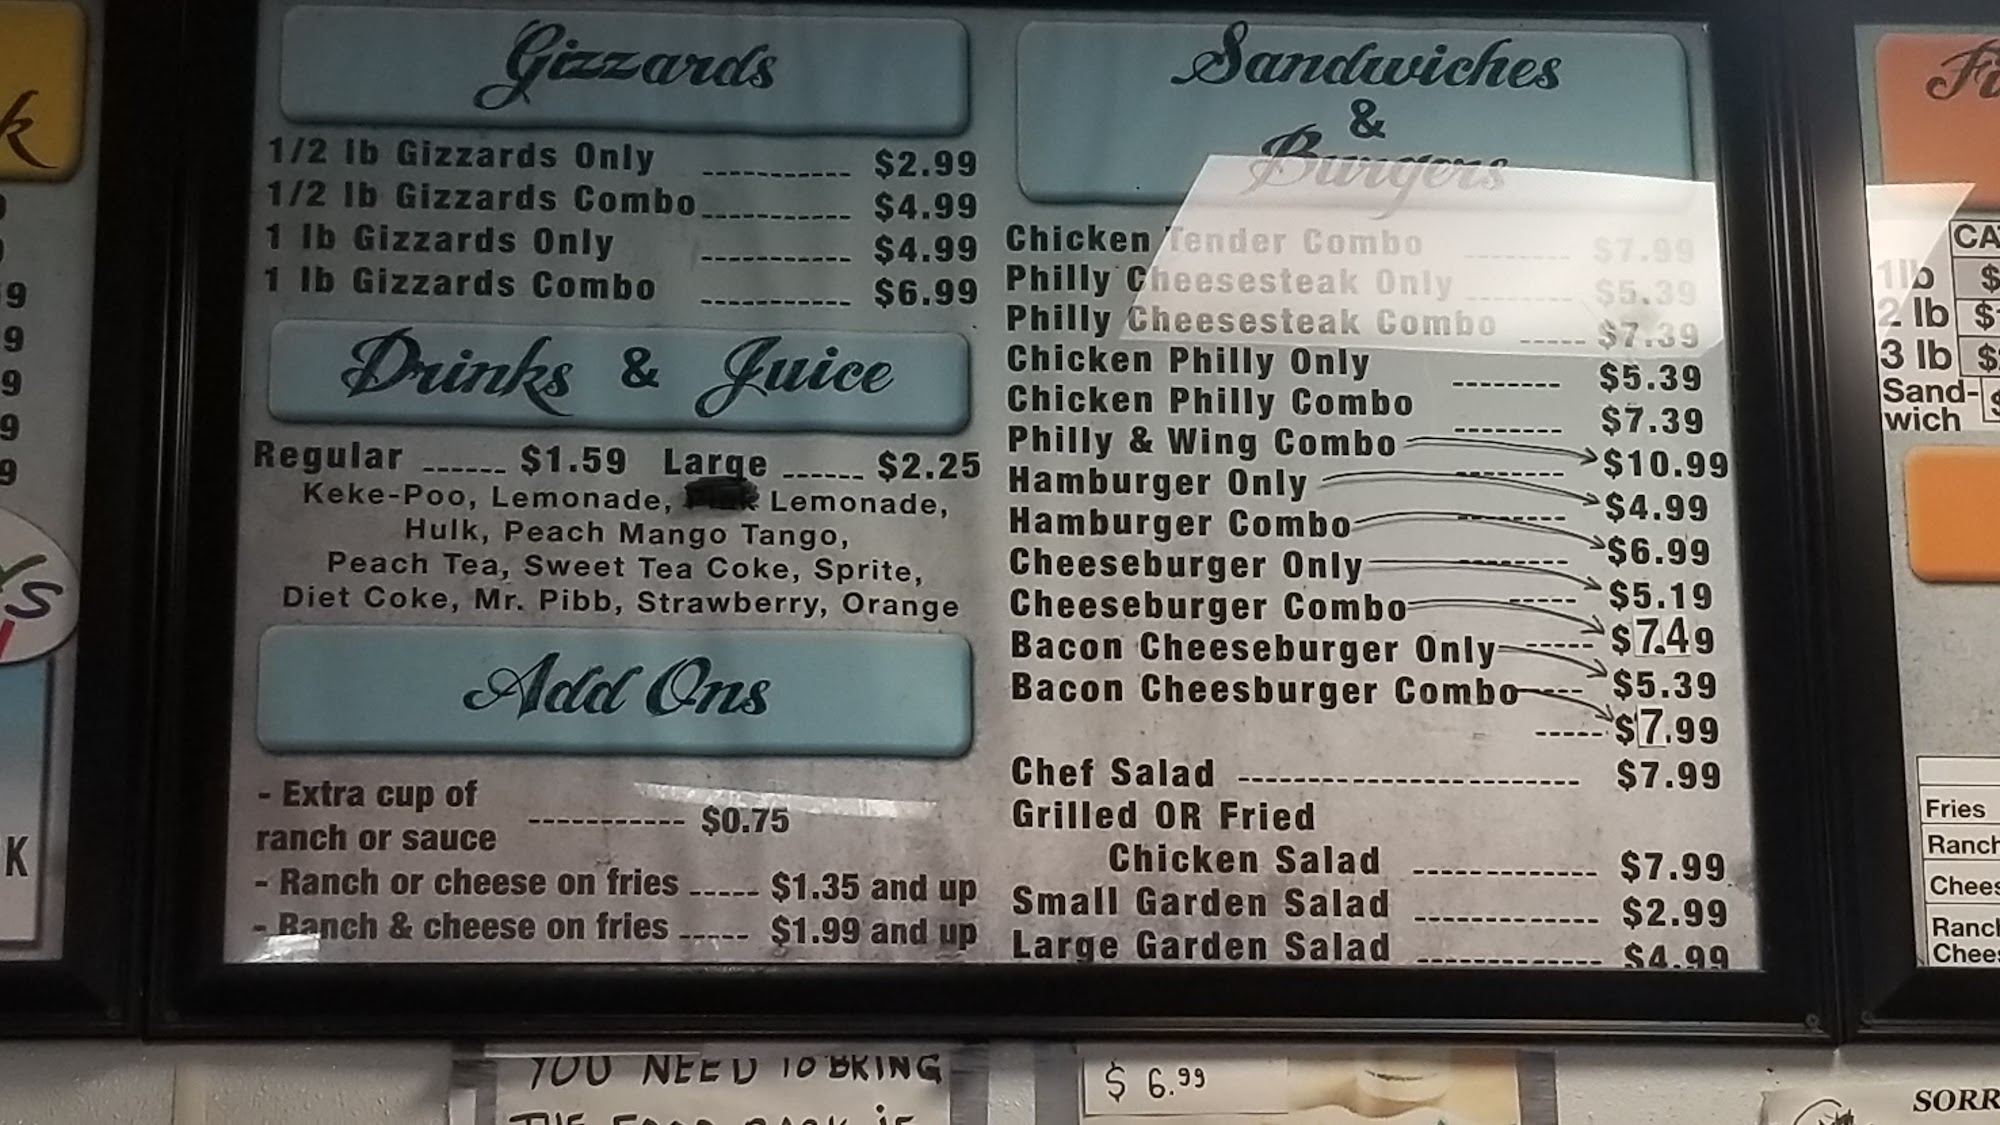 Gizzards
1/2 lb Gizzards Only ----------- $2.99
1/2 lb Gizzards Combo ----------- $4.99
1 lb Gizzards Only ----------- $4.99
1 lb Gizzards Combo ----------- $6.99
Drinks & Juice
Regular ------ $1.59 Large ------ $2.25
Keke-Poo, Lemonade, Lemonade,
Hulk, Peach Mango Tango,
Peach Tea, Sweet Tea Coke, Sprite,
Diet Coke, Mr. Pibb, Strawberry, Orange
Add Ons
- Extra cup of
ranch or sauce ----------- $0.75
- Ranch or cheese on fries ----- $1.35 and up
- Ranch & cheese on fries ----- $1.99 and up
Sandwiches
&
Burgers
Chicken Tender Combo -------- $7.99
Philly Cheesesteak Only -------- $5.39
Philly Cheesesteak Combo ----- $7.39
Chicken Philly Only -------- $5.39
Chicken Philly Combo -------- $7.39
Philly & Wing Combo -------- $10.99
Hamburger Only -------- $4.99
Hamburger Combo -------- $6.99
Cheeseburger Only ----- $5.19
Cheeseburger Combo ----- $7.49
Bacon Cheeseburger Only ----- $5.39
Bacon Cheesburger Combo ----- $7.99
Chef Salad ------------------------- $7.99
Grilled OR Fried
Chicken Salad ------------- $7.99
Small Garden Salad ------------- $2.99
Large Garden Salad ------------- $4.99
1 lb $
2 lb $
3 lb $
Sand-
wich
Fries
K
YOU NEED TO BRING
$ 6.99